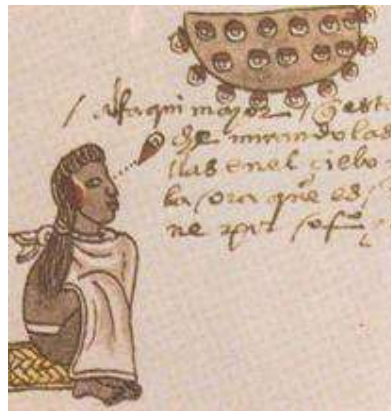 alfaqui mayor / q̃ est
che mirando las
llas en el çielo
la ora que es
ne por ofi